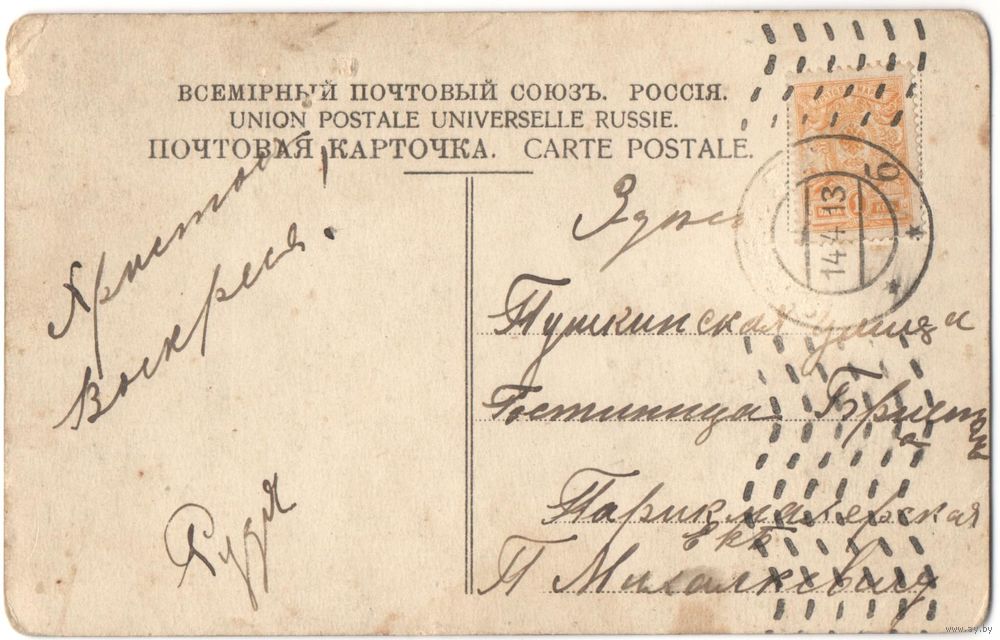 ВСЕМІРНЫЙ ПОЧТОВЫЙ СОЮЗЪ. РОССІЯ.
UNION POSTALE UNIVERSELLE RUSSIE.
ПОЧТОВАЯ КАРТОЧКА. CARTE POSTALE.
Христосъ
Воскресе.
Рудя
Здесь
Пушкинская улица
Гостинница Бристоль
Парикмахерская
П
14.4.13
б
www.ay.by